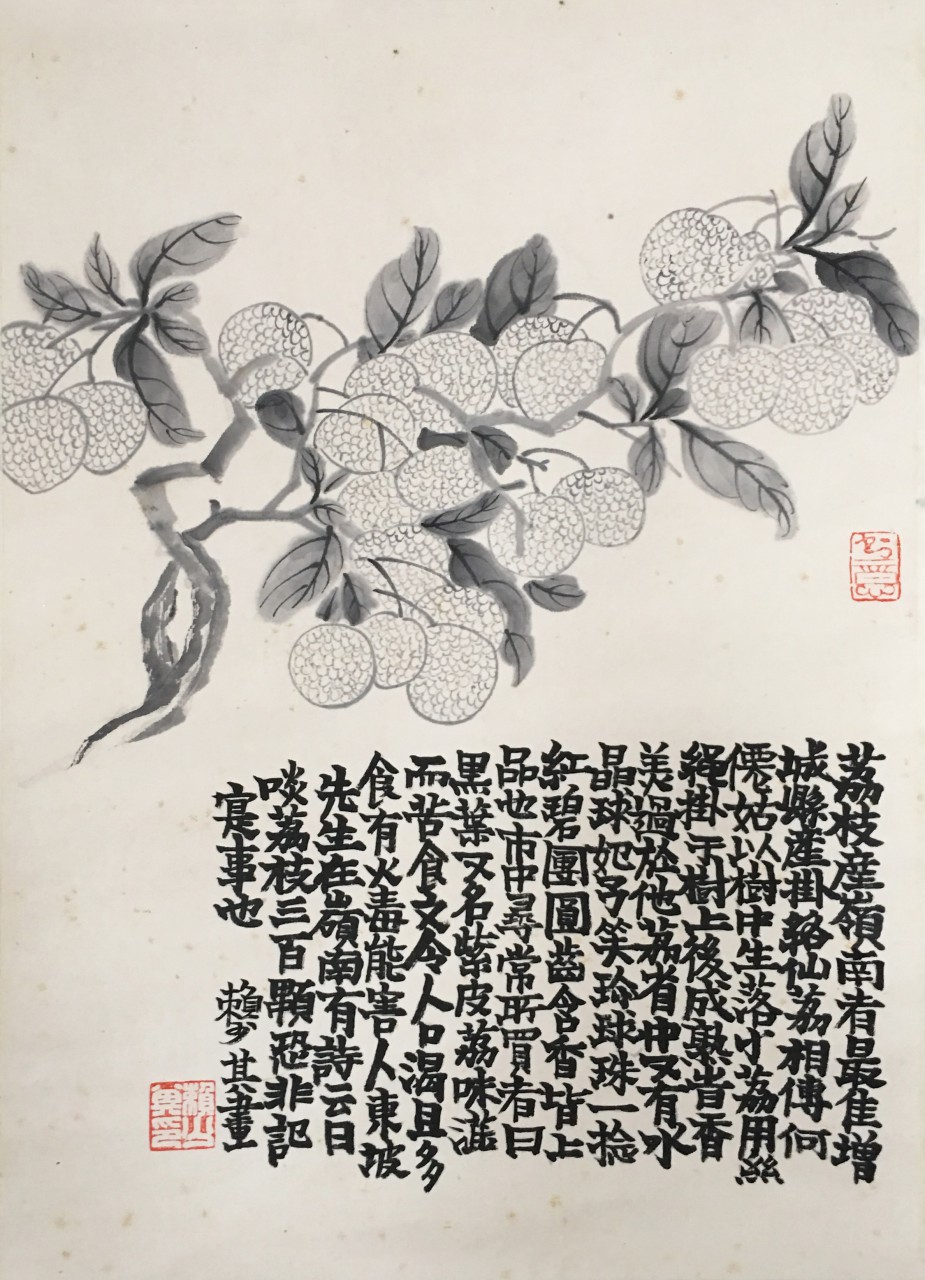 荔枝産嶺南者最佳增
城縣產掛綠仙荔相傳何
僊姑以樹中生落寸荔用絲
繩掛于樹上後成熟皆香
美過於他荔省中又有水
晶球妃子笑玲球珠一捻
紅碧團圓齒含香皆上
品也市中尋常所買者曰
黑葉又名紫皮荔味澁
而苦食文令人口渴且多
食有火毒能害人東坡
先生在嶺南有詩云日
啖荔枝三百顆恐非記
寔事也
賴少其畫
賴少其印